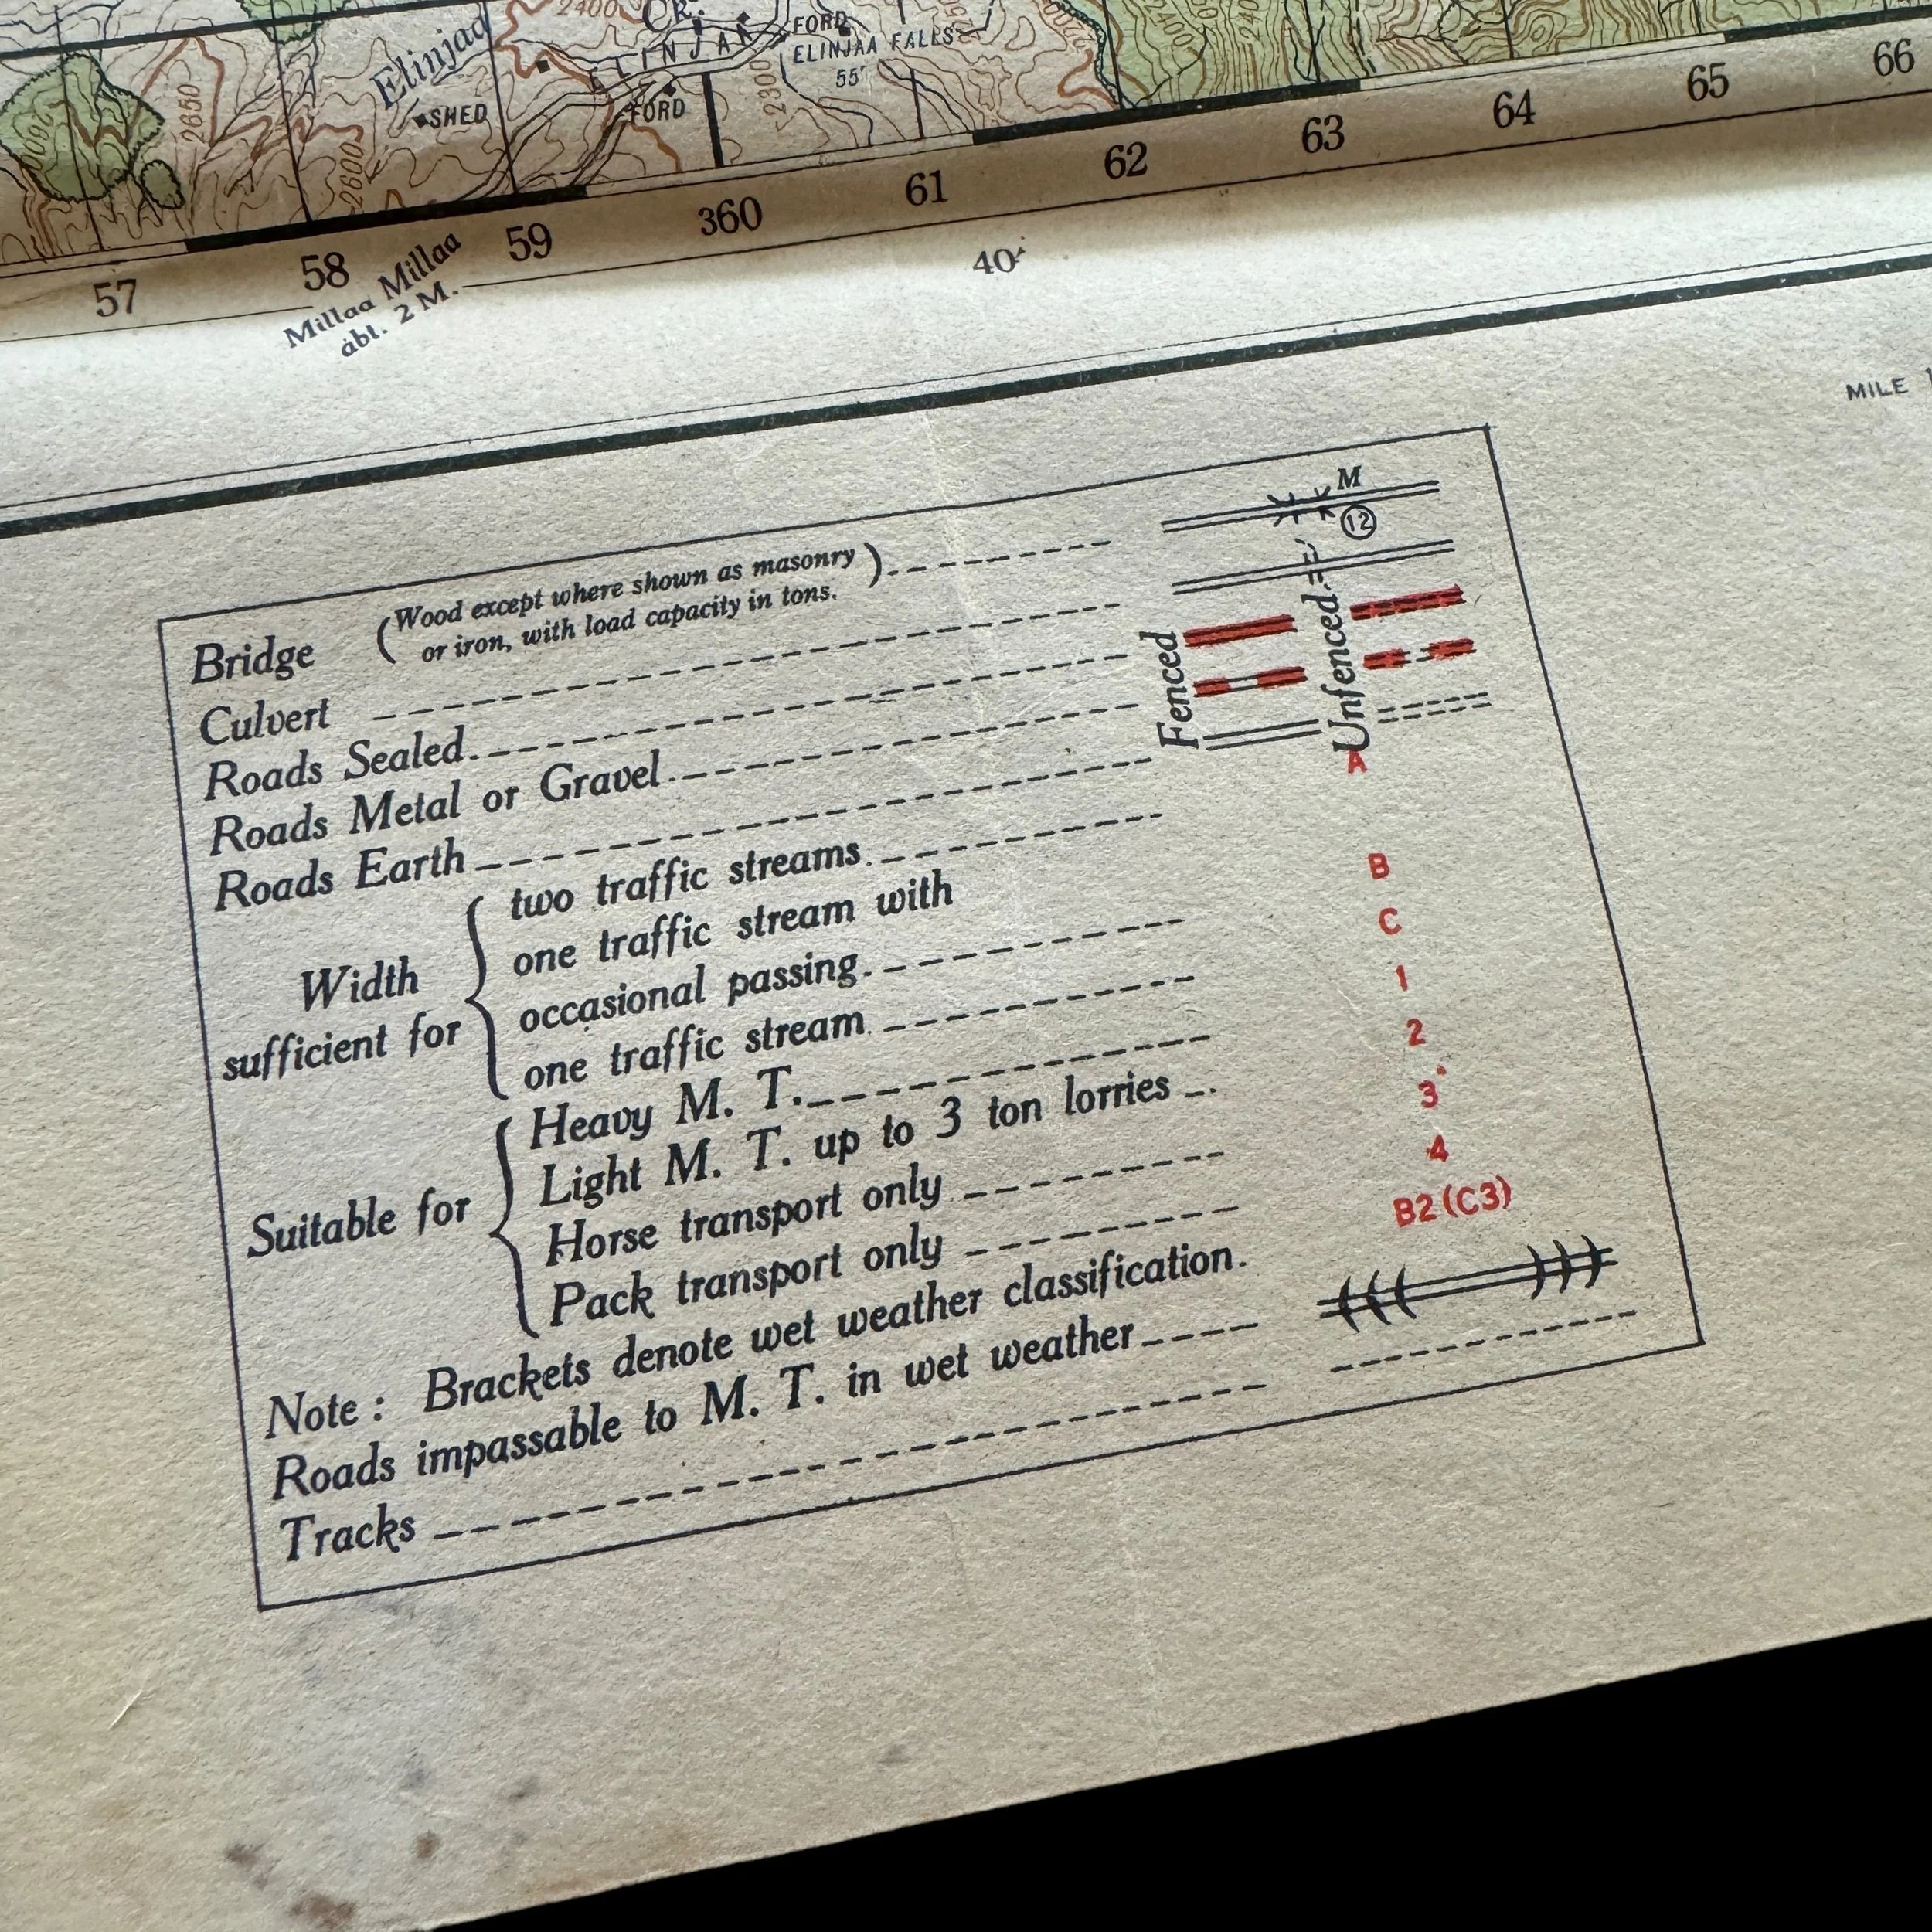 2400
CR.
FORD
ELINJAA FALLS
55'
Elinjaa
ELINJAA
2650
2600
SHED
FORD
2300
2600
2400
240
57
58
59
360
61
62
63
64
65
66
Millaa Millaa
abl. 2 M.
40'
MILE 1
Bridge (Wood except where shown as masonry
or iron, with load capacity in tons.) M
12
Culvert
Fenced
Unfenced
Roads Sealed
Roads Metal or Gravel
Roads Earth
Width
sufficient for
two traffic streams A
one traffic stream with
occasional passing B
one traffic stream C
Suitable for
Heavy M. T. 1
Light M. T. up to 3 ton lorries 2
Horse transport only 3
Pack transport only 4
Note : Brackets denote wet weather classification. B2 (C3)
Roads impassable to M. T. in wet weather
Tracks